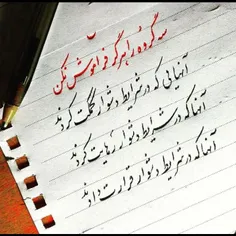 سه گروه را هرگز فراموش نکن
آنهایی که در شرایط دشوار کمکت کردند
آنها که در شرایط دشوار رهایت کردند
آنها که در شرایط دشوار قرارت دادند